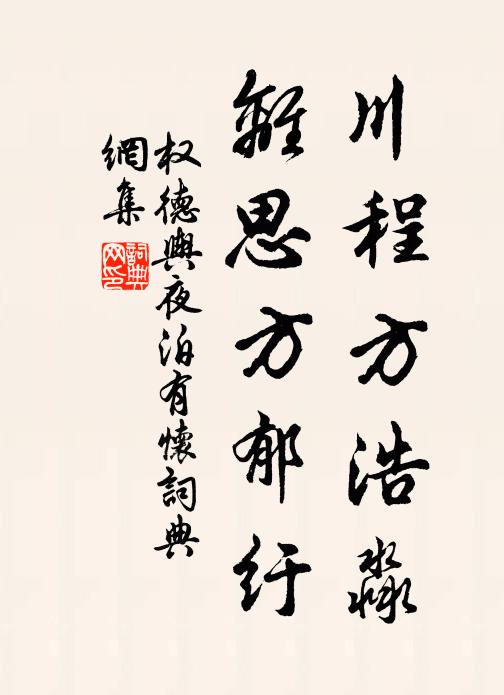 川程方浩淼
離思方郁纡
权德輿夜泊有懷詞典
網集
詞典
网印